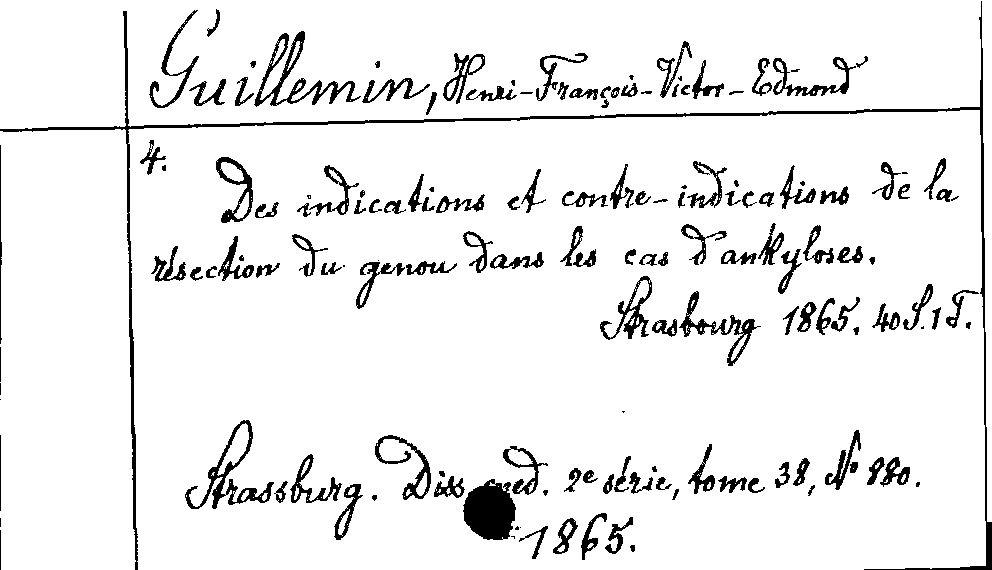 Guillemin, Henri-François-Victor-Edmond
4.
Des indications et contre-indications de la
résection du genou dans les cas d'ankyloses.
Strasbourg 1865. 40 S. 1 T.
Strassburg. Diss. med. 2e série, tome 38, No 880.
1865.